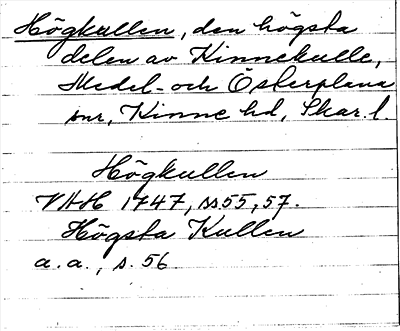 Högkullen, den högsta
delen av Kinnekulle,
Medel- och Österplana
snr, Kinne hd, Skar. l.
Högkullen
VHH 1747, ss 55, 57.
Högsta Kullen
a. a., s. 56.